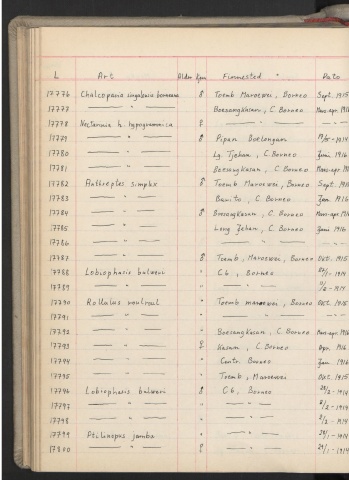 L Art Alder Kjøn Finnested Dato
17776 Chalcoparia singalensis borneana ♂ Toemb. Maroewei, Borneo Sept. 1915
17777 — " — Boesangkasan, C. Borneo Mars-apr. 1916
17778 Nectarinia h. hypogrammica ♀ — " — — " —
17779 — " — ♂ Pipan Boelongan 1914
17780 — " — Lg. Tjehan, C. Borneo Juni 1916
17781 — " — Boesangkasan, C. Borneo Mars-apr. 19
17782 Anthreptes simplex ♂ Toemb. Maroewei, Borneo Sept. 19
17783 — " — Barito, C. Borneo Jan 1916
17784 — " — ♂ Boesangkasan, C. Borneo Mars-apr. 1916
17785 — " — Long Zehan, C. Borneo Juni 1916
17786 — " — — " — — " —
17787 — " — ♂ Toemb. Maroewei, Borneo Okt. 1915
17788 Lobiophasis bulweri " C b, Borneo 1914
17789 — " — " — " — 1914
17790 Rollulus roulroul " Toemb. maroewei, Borneo Okt. 1915
17791 — " — " — " — — " —
17792 — " — " Boesangkasan, C. Borneo Mars-apr. 1916
17793 — " — ♀ Kasan, C. Borneo Apr. 1916
17794 — " — " Centr. Borneo Jan 1916
17795 — " — " Toemb. Maroewei Okt. 1915
17796 Lobiophasis bulweri ♂ C b, Borneo 1914
17797 — " — " — " — 1914
17798 — " — " — " — 1914
17799 Ptilinopus jambu " — " — 1914
17800 — " — ♀ — " — 1914